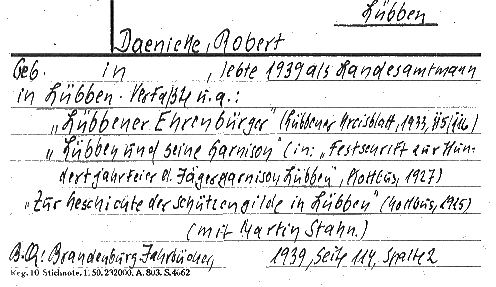 Lübben
Daenicke, Robert
Geb. in , lebte 1939 als Landesamtmann
in Lübben. Verfaßte u.a.:
"Lübbener Ehrenbürger" (Lübbener Kreisblatt, 1933,
"Lübben und seine Garnison" (in: "Festschrift zur Hun-
dertjahrfeier d. Jägergarnison Lübben", Kottbus, 1927)
"Zur Geschichte der Schützengilde in Lübben" (Kottbus, 1925)
(mit Martin Stahn.)
B.Q.: Brandenburg. Jahrbücher, 1939, Seite 114, Spalte 2
Reg. 10 Stichnote. I. 50. 232000. A. 803. S. 4662